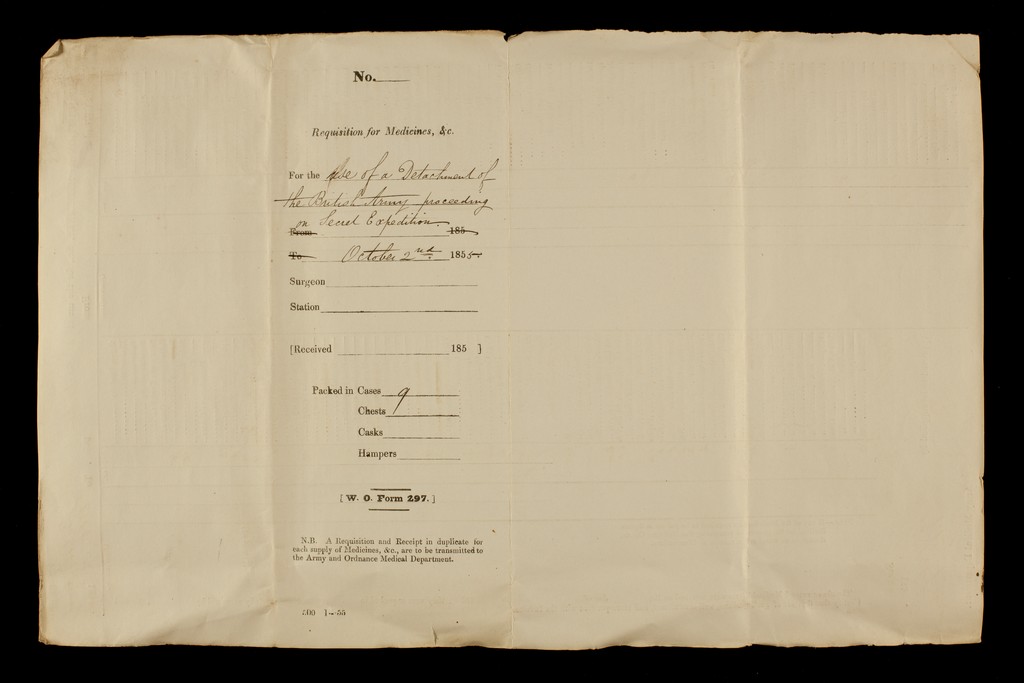 No.
Requisition for Medicines, &c.
For the Use of a Detachment of
the British Army proceeding
on Secret Expedition.
From 185
To October 2nd. 1855.
Surgeon
Station
[Received 185 ]
Packed in Cases 9
Chests
Casks
Hampers
[W. O. Form 297.]
N.B. A Requisition and Receipt in duplicate for
each supply of Medicines, &c., are to be transmitted to
the Army and Ordnance Medical Department.
500 1—55